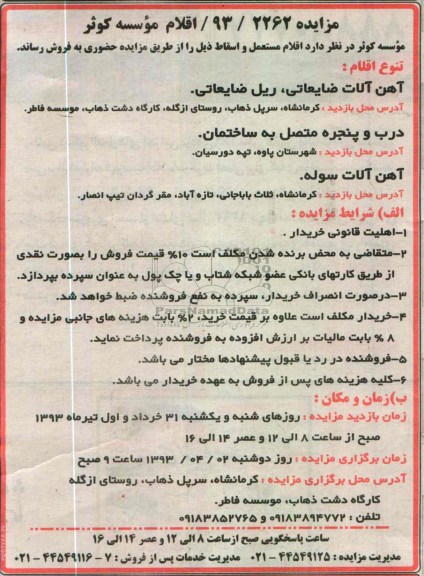 مزایده ۲۲۶۲ / ۹۳/ اقلام مؤسسه کوثر
مؤسسه کوثر در نظر دارد اقلام مستعمل و اسقاط ذیل را از طریق مزایده حضوری به فروش رساند.
تنوع اقلام :
آهن آلات ضایعاتی، ریل ضایعاتی.
آدرس محل بازدید : کرمانشاه، سرپل ذهاب، روستای ازگله، کارگاه دشت ذهاب، موسسه فاطر.
درب و پنجره متصل به ساختمان.
آدرس محل بازدید : شهرستان پاوه، تپه دورسیان.
آهن آلات سوله.
آدرس محل بازدید : کرمانشاه، ثلاث باباجانی، تازه آباد، مقر گردان تیپ انصار.
الف) شرایط مزایده :
۱-اهلیت قانونی خریدار .
۲-متقاضی به محض برنده شدن مکلف است ۱۰% قیمت فروش را بصورت نقدی
از طریق کارتهای بانکی عضو شبکه شتاب و یا چک پول به عنوان سپرده بپردازد.
۳-درصورت انصراف خریدار، سپرده به نفع فروشنده ضبط خواهد شد.
ParsNamadData
۴-خریدار مکلف است علاوه بر قیمت خرید، ۲% بابت هزینه های جانبی مزایده و
۸ % بابت مالیات بر ارزش افزوده به فروشنده پرداخت نماید.
۵-فروشنده در رد یا قبول پیشنهادها مختار می باشد.
۶-کلیه هزینه های پس از فروش به عهده خریدار می باشد.
ب)زمان و مکان :
زمان بازدید مزایده : روزهای شنبه و یکشنبه ۳۱ خرداد و اول تیرماه ۱۳۹۳
صبح از ساعت ۸ الی ۱۲ و عصر ۱۴ الی ۱۶
زمان برگزاری مزایده : روز دوشنبه ۰۲ / ۰۴ / ۱۳۹۳ ساعت ۹ صبح
آدرس محل برگزاری مزایده : کرمانشاه، سرپل ذهاب، روستای ازگله
کارگاه دشت ذهاب، موسسه فاطر.
تلفن : ۰۹۱۸۳۸۹۴۷۷۲ و ۰۹۱۸۳۸۵۲۷۶۵
ساعت پاسخگویی صبح از ساعت ۸ الی ۱۲ و عصر ۱۴ الی ۱۶
مدیریت مزایده : ۴۴۵۴۹۱۲۵ - ۰۲۱ مدیریت خدمات پس از فروش : ۷ - ۴۴۵۴۹۱۱۶ - ۰۲۱